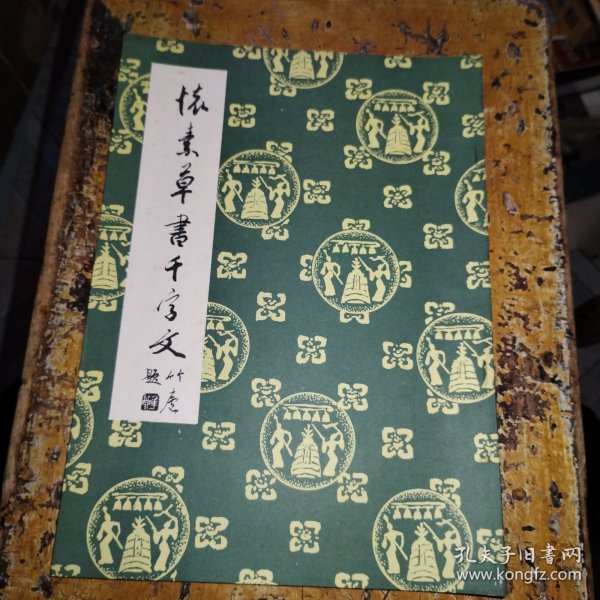 懐素草書千字文
竹庵
題
孔夫子旧書网
www.kongfz.com